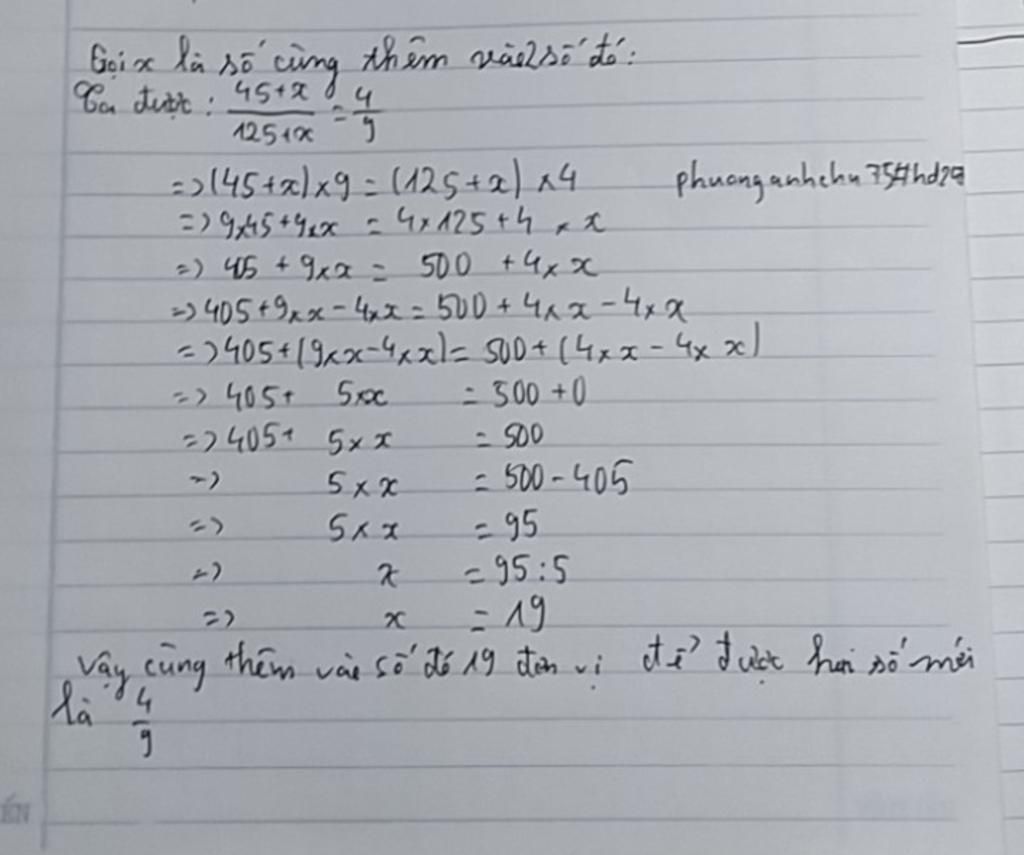 Gọi x là số cùng thêm vào 2 số đó:
Ta được: \frac{45+x}{125+x} = \frac{4}{9}
=> (45+x)×9 = (125+x)×4
phuonganhchu75#hd29
=> 9×45+9×x = 4×125+4×x
=> 405 + 9×x = 500 + 4×x
=> 405+9×x-4×x = 500+4×x-4×x
=> 405+(9×x-4×x) = 500+(4×x-4×x)
=> 405+ 5×x = 500+0
=> 405+ 5×x = 500
=> 5×x = 500-405
=> 5×x = 95
=> x = 95:5
=> x = 19
Vậy cùng thêm vào số đó 19 đơn vị để được hai số mới
là \frac{4}{9}